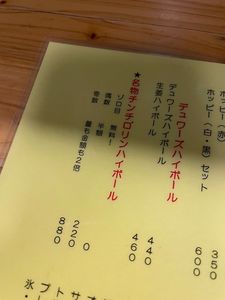 ホッピー(赤) 350
ホッピー(白・黒)セット 600
デュワーズハイボール
デュワーズハイボール 440
生姜ハイボール 460
★名物チンチロリンハイボール
ゾロ目 無料! 0
偶数 半額 220
奇数 量も金額も2倍 880